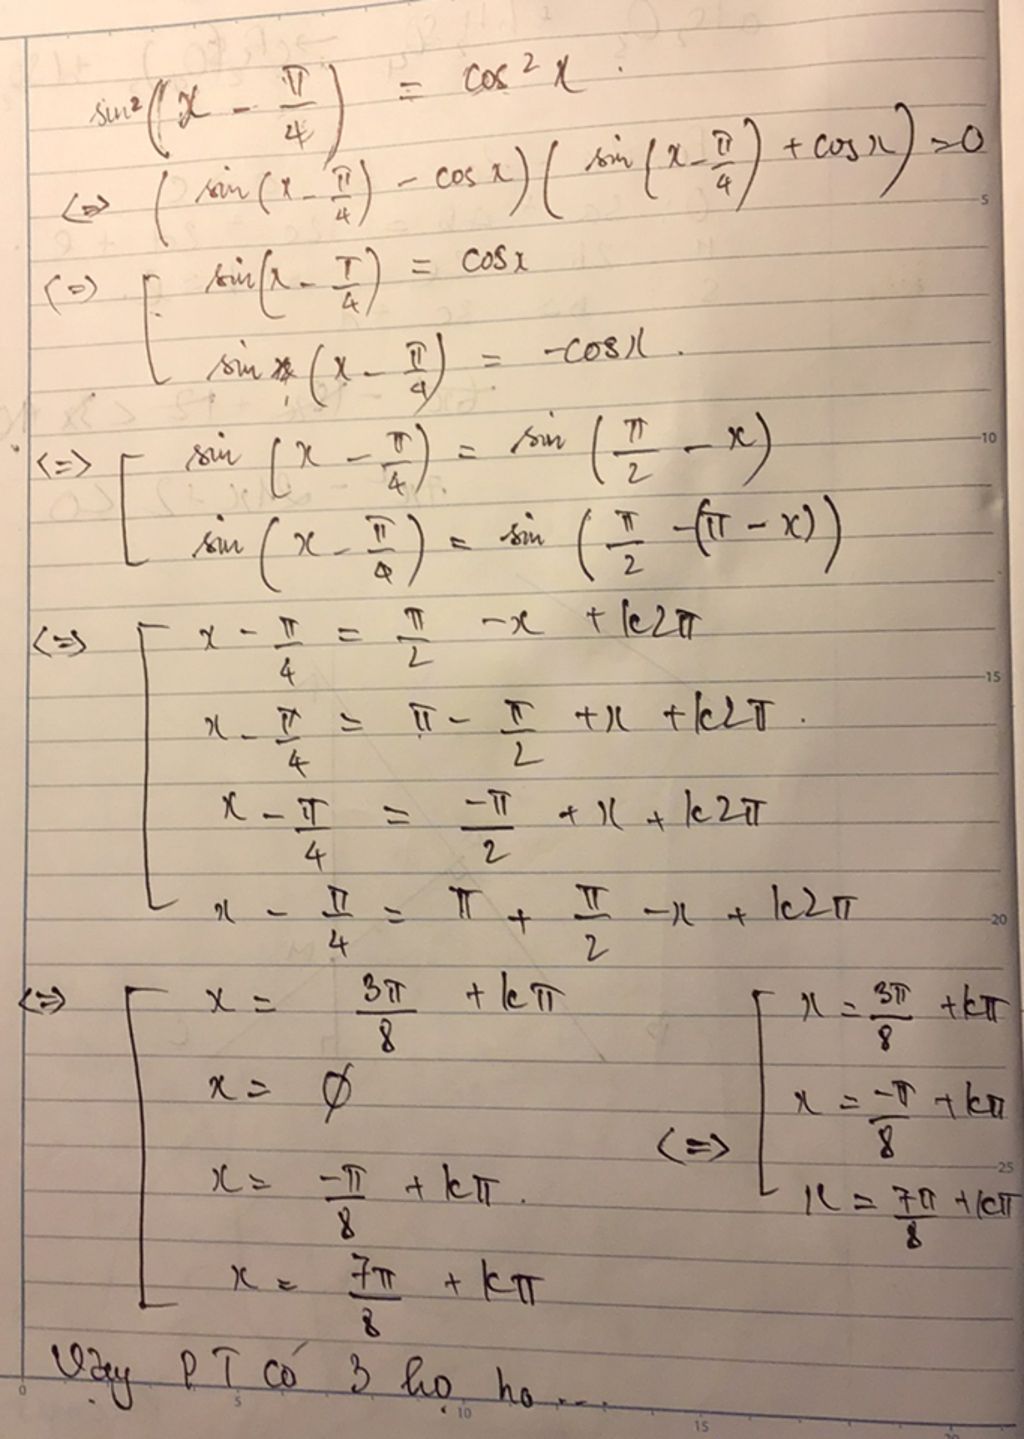 sin²(x - π/4) = cos²x.
<=> (sin(x - π/4) - cosx)(sin(x - π/4) + cosx) = 0
<=> [ sin(x - π/4) = cosx
sin (x - π/4) = -cosx.
<=> [ sin(x - π/4) = sin(π/2 - x)
sin(x - π/4) = sin(π/2 - (π - x))
<=> [ x - π/4 = π/2 - x + k2π
x - π/4 = π - π/2 + x + k2π.
x - π/4 = -π/2 + x + k2π
x - π/4 = π + π/2 - x + k2π
<=> [ x = 3π/8 + kπ
x = ∅
x = -π/8 + kπ.
x = 7π/8 + kπ
<=> [ x = 3π/8 + kπ
x = -π/8 + kπ
x = 7π/8 + kπ
Vậy PT có 3 họ no ...
5
10
15
20
25
0
5
10
15
20